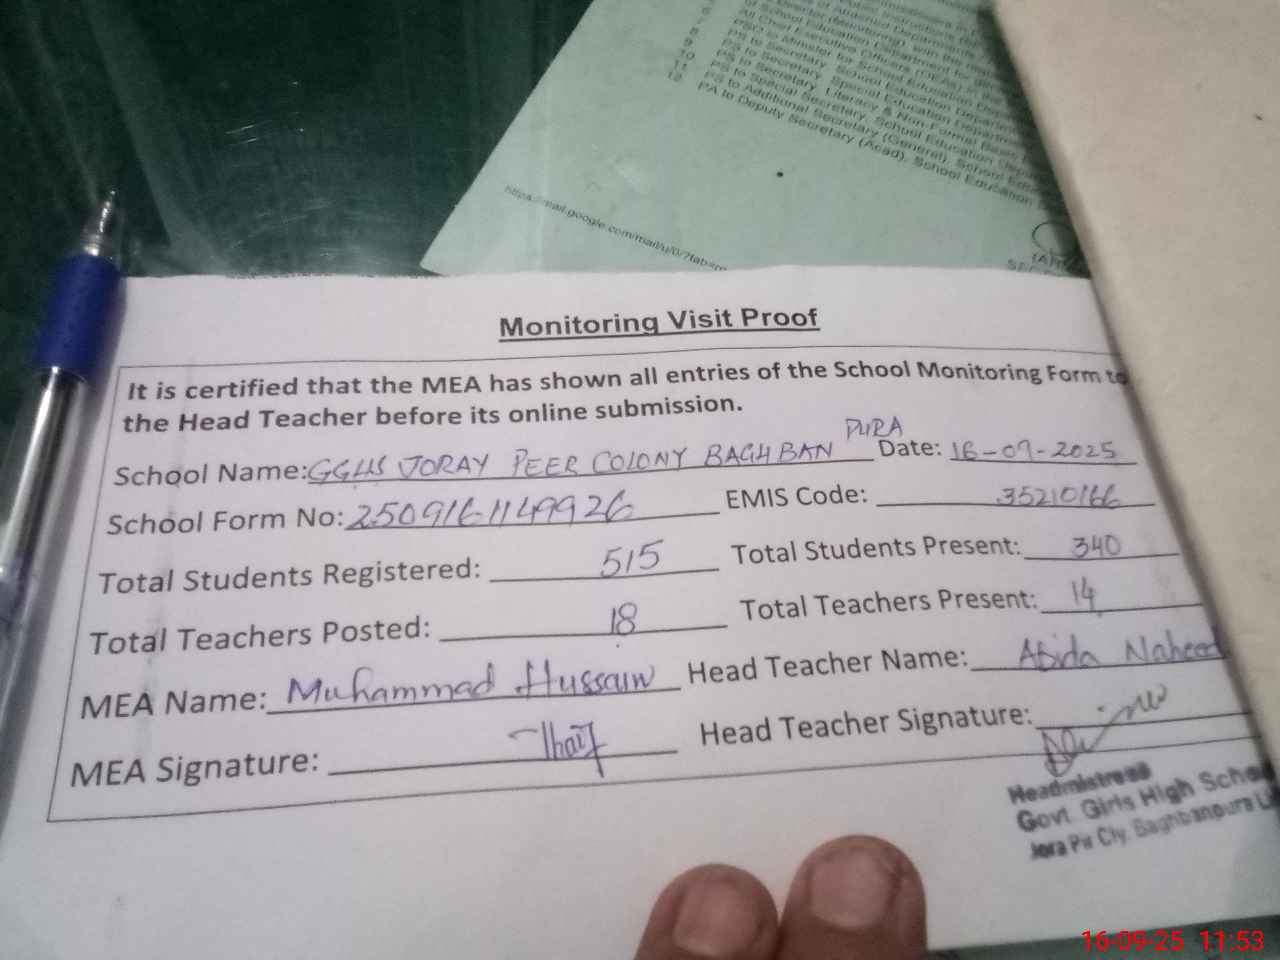 8
9
10
11
12
PSO to Minister for School Education
PS to Secretary, School Education Department
PS to Secretary, Special Education Department
PS to Secretary, Literacy & Non-Formal Basic
PS to Special Secretary, School Education
PS to Additional Secretary (General), School
PA to Deputy Secretary (Acad), School Education
https://mail.google.com/mail/u/0/?tab=
Monitoring Visit Proof
It is certified that the MEA has shown all entries of the School Monitoring Form to
the Head Teacher before its online submission.
School Name: GGHS JORAY PEER COLONY BAGHBAN PURA Date: 16-09-2025
School Form No: 250916-1149926 EMIS Code: 35210166
Total Students Registered: 515 Total Students Present: 340
Total Teachers Posted: 18 Total Teachers Present: 14
MEA Name: Muhammad Hussain Head Teacher Name: Abida Naheed
MEA Signature: Head Teacher Signature:
Headmistress
Govt. Girls High School
Jora Pir Cly. Baghbanpura
16-09-25 11:53